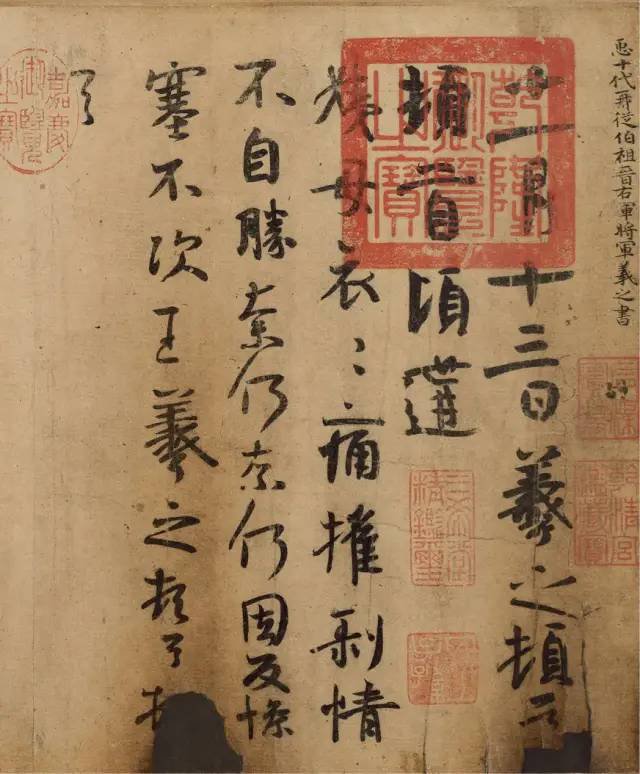 𢘑十代再從伯祖晉右軍將軍羲之書
十一月十三日羲之頓首
頓首頃遘
姨母哀〻痛摧剝情
不自勝奈何奈何因反慘
塞不次王羲之頓首頓
首
乾隆御覽之寶
三希堂精鑑璽
嘉慶御覽之寶